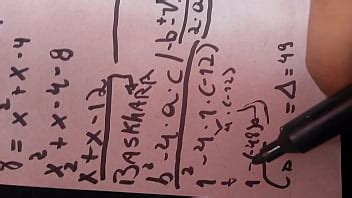 8 = x² + x - 4
x² + x - 4 - 8
x² + x - 12
BASKHARA
b² - 4 · a · c
1² - 4 · 1 · (-12)
4 · (-12)
1 - (-48)
= Δ = 49
-b ± √
2 · a